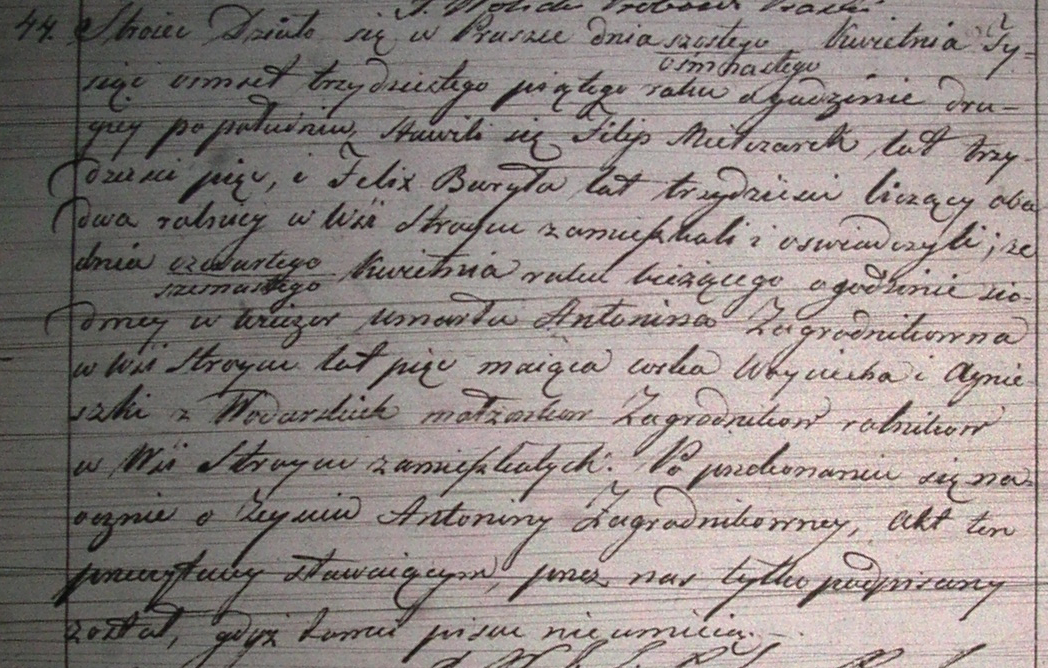 X. Wolski Proboszcz Praszki
44. Stroiec Działo się w Praszce dnia szostego / osmnastego Kwietnia Ty-
siąc osmset trzydziestego piątego roku o godzinie dru-
giey po południu, stawili się Filip Mielczarek lat trzy-
dzieści pięc, i Felix Buryta lat trzydzieści liczący oba
dwa rolnicy w Wśi Stroycu zamieszkali i oswiadczyli; ze
dnia czwartego / szesnastego Kwietnia roku bieżącego o godzinie sio-
dmey w wieczor umarła Antonina Zagrodnikowna
w Wśi Stroycu lat pięc maiąca corka Woyciecha i Agnie-
szki z Wodarskich małżonkow Zagrodnikow rolnikow
w Wśi Stroycu zamieszkałych. Po przekonaniu się na-
ocznie o Zeysciu Antoniny Zagrodnikowney, Akt ten
przeczytany stawaiącym, przez nas tylko podpisany
został, gdyż tamci pisac nieumieią.